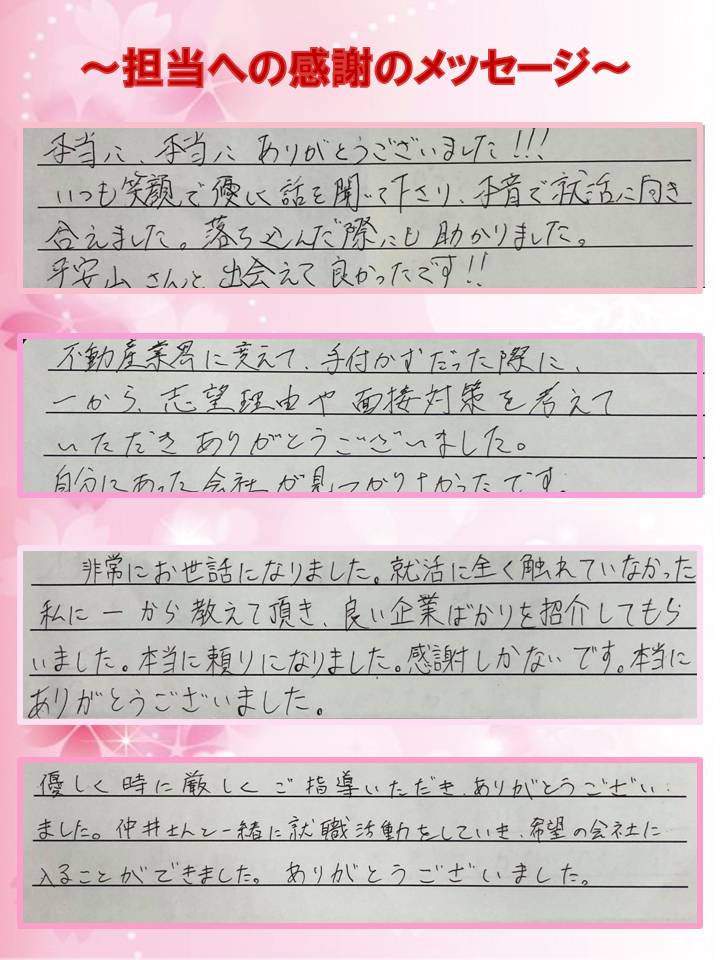 ～担当への感謝のメッセージ～
本当に、本当に ありがとうございました!!!
いつも笑顔で優しく話を聞いて下さり、本音で就活に向き
合えました。落ち込んだ際にも助かりました。
平安山さんと出会えて良かったです!!
不動産業界に変えて、手付かずだった際に、
一から、志望理由や面接対策を考えて
いただきありがとうございました。
自分にあった会社が見つかりよかったです。
非常にお世話になりました。就活に全く触れていなかった
私に一から教えて頂き、良い企業ばかりを紹介してもら
いました。本当に頼りになりました。感謝しかないです。本当に
ありがとうございました。
優しく時に厳しくご指導いただき、ありがとうござい
ました。仲井さんと一緒に就職活動をしていき、希望の会社に
入ることができました。ありがとうございました。